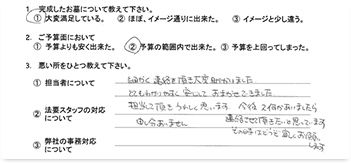 1. 完成したお墓について教えて下さい。
① 大変満足している。 ② ほぼ、イメージ通りに出来た。 ③ イメージと少し違う。
2. ご予算面において
① 予算よりも安く出来た。 ② 予算の範囲内で出来た。 ③ 予算を上回ってしまった。
3. 思い所をひとつ教えて下さい。
① 担当者について
連絡を頂き大変助かりました
とてもわかりやすく安心しておまかせできました
② 法要スタッフの対応について
担当して頂きうれしく思います 今後又何かありましたら
申し分ありません 連絡させて頂きたいと思っています
③ 弊社の事務対応について
その時はどうぞ宜しくお願いします